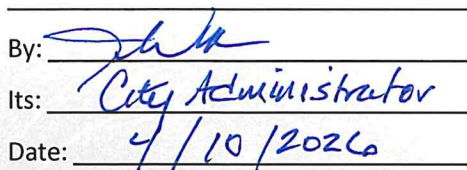 By:
Its: City Administrator
Date: 4/10/2026